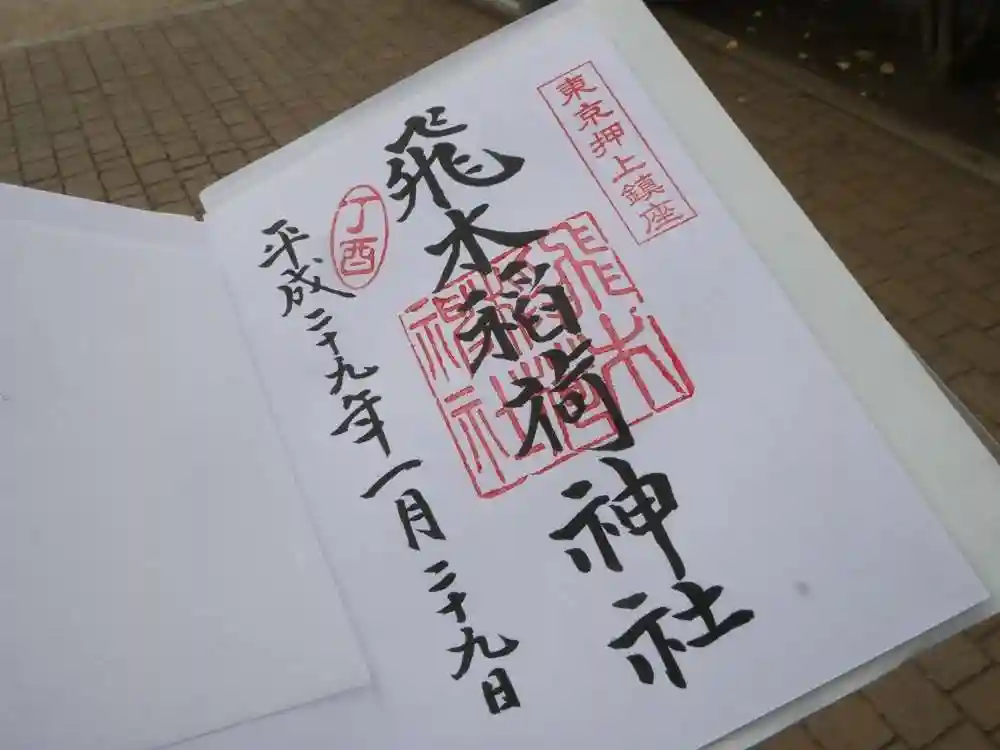 東京押上鎮座
飛木稲荷神社
飛木
稲荷
神社
丁酉
平成二十九年一月二十九日